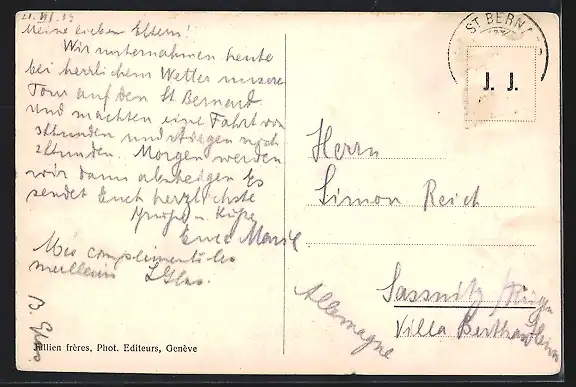 Meine lieben Eltern!
Wir unternahmen heute
bei herrlichem Wetter unsere
Tour auf den St Bernard
und machten eine Fahrt von
3 Stunden und stiegen noch
2 Stunden. Morgen werden
wir dann absteigen Es
sendet Euch herzlichste
Grüße u. Küße
Eure Marie
Mes compliments les
meilleurs
Jullien frères, Phot. Editeurs, Genève
ST BERNARD
J. J.
Herrn
Simon Reich
Sassnitz
Villa Bertha
Allemagne